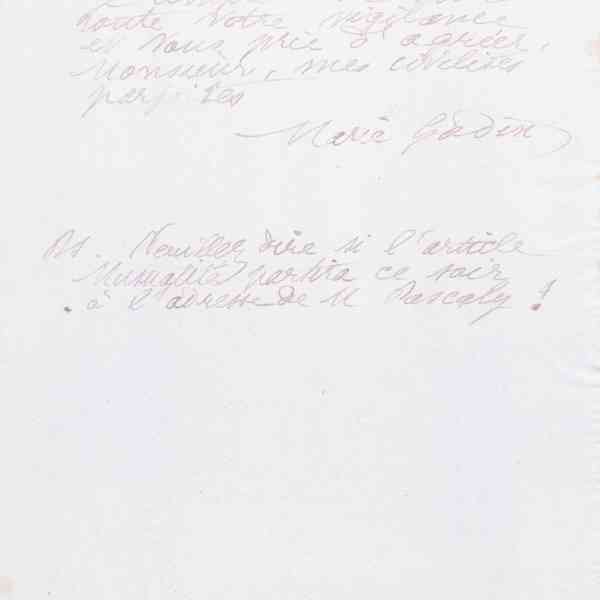 toute votre vigilance
et vous prie d'agréer,
Monsieur, mes civilités
parfaites
Marie
Ps. Veuillez dire si l'article
Mutualité partira ce soir
à l'adresse de M Pascaly !